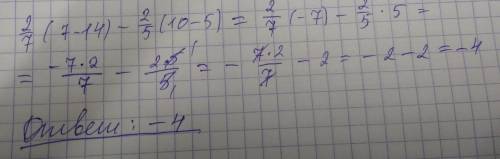 2/7 (7-14) - 2/5 (10-5) = 2/7 (-7) - 2/5 · 5 =
= -7·2/7 - 2·5¹/5₁ = - 7·2/7 - 2 = - 2 - 2 = -4
Ответ: -4